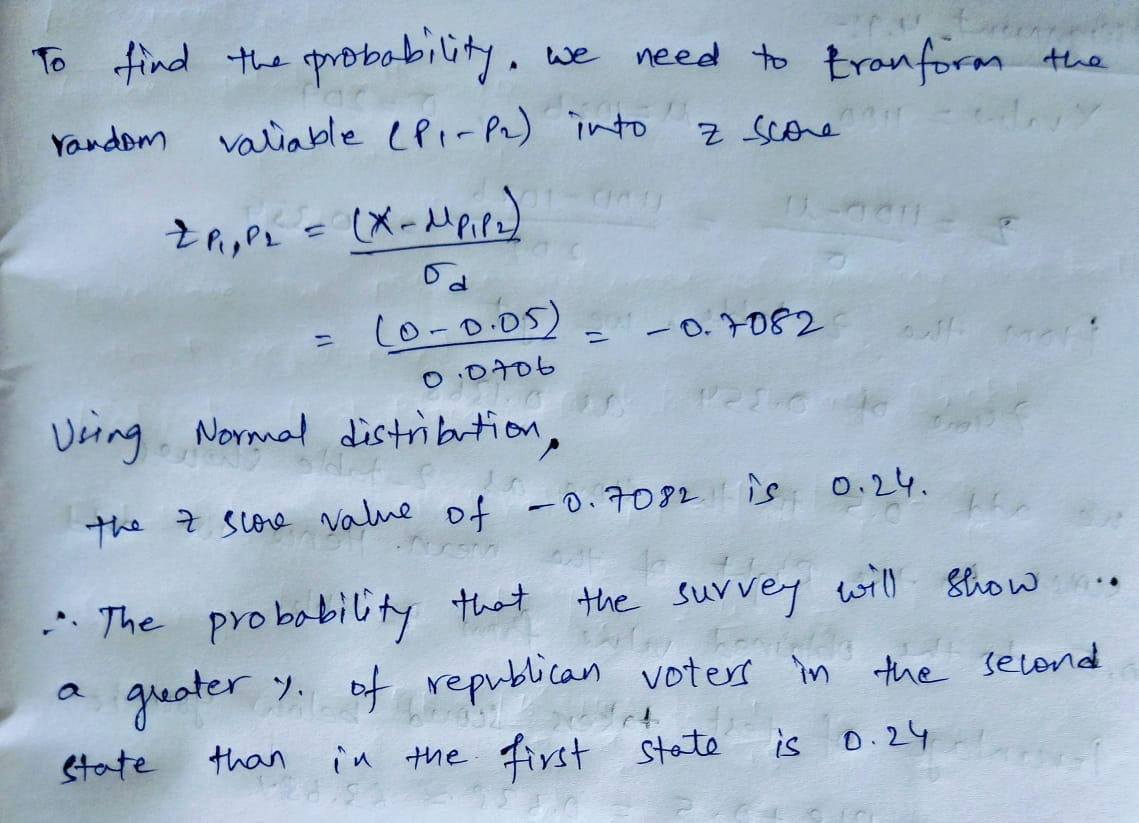 To find the probability. we need to tranform the
random valiable (P1-P2) into z score
z P1,P2 = (X-μP1P2)
σd
= (0-0.05) = -0.7082
0.0706
Using Normal distribution,
the z score value of -0.7082 is 0.24.
∴ The probability that the survey will show
a greater %. of republican voters in the second
state than in the first state is 0.24